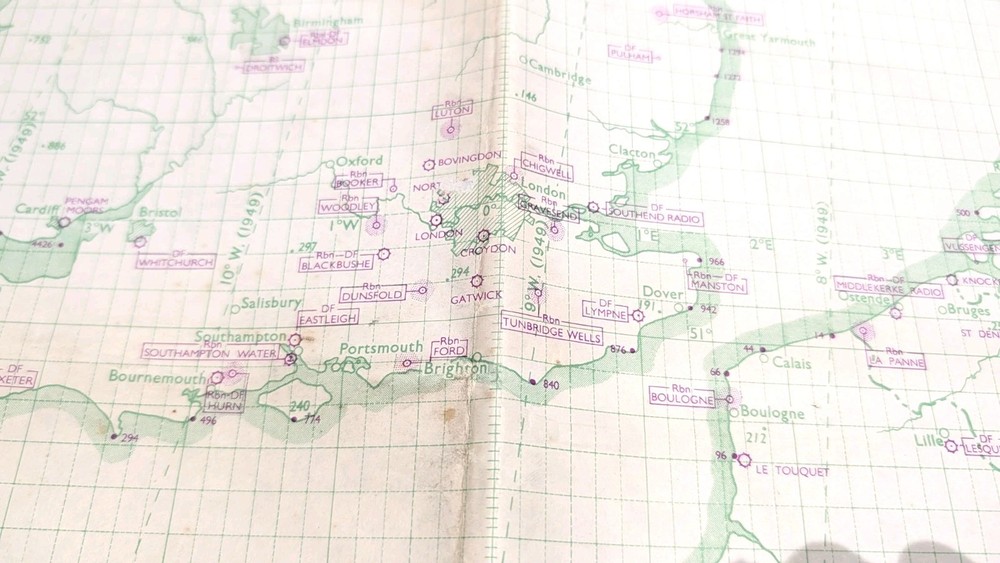 HORSHAM ST. FAITH
Great Yarmouth
Birmingham
Rbn-DF
ELMDON
DROITWICH
DF
PULHAM
1272
Cambridge
.146
1258
Rbn
LUTON
52°
.886
W. (1949)
Oxford
BOVINGDON
Rbn
CHIGWELL
Clacton
Rbn
BOOKER
NORT
London
Rbn
WOODLEY
GRAVESEND
SOUTHEND RADIO
Cardiff
PENGAM
MOORS
Bristol
3°W
1°W
0°
1°E
2°E
3°E
500
4426
LONDON
CROYDON
.297
Rbn-DF
BLACKBUSHE
DF
WHITCHURCH
10° W. (1949)
9° W. (1949)
8° W. (1949)
966
Rbn-DF
MANSTON
VLISSINGEN
Rbn
DUNSFOLD
.294
GATWICK
Rbn-DF
MIDDLEKERKE RADIO
Ostende
KNOCK
Bruges
Salisbury
DF
EASTLEIGH
Dover
191
942
DF
LYMPNE
Rbn
TUNBRIDGE WELLS
51°
ST DEN
Southampton
Rbn
SOUTHAMPTON WATER
Portsmouth
Rbn
FORD
Brighton
876
44
14
Calais
Rbn
LA PANNE
DF
EXETER
Bournemouth
Rbn-DF
HURN
840
66
Rbn
BOULOGNE
Boulogne
240
774
496
294
212
Lille
DF
LESQU
96
LE TOUQUET